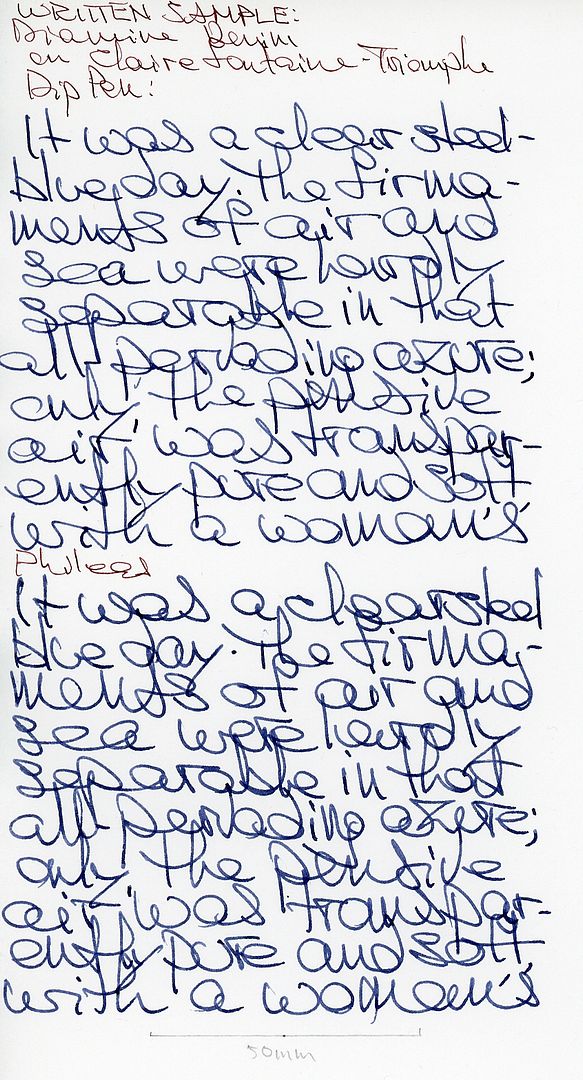 WRITTEN SAMPLE:
Diamine Denim
on Clairefontaine-Triomphe
Dip Pen:
It was a clear steel-
blue day. The firma-
ments of air and
sea were hardly
separable in that
all-pervading azure;
only, the pensive
air was transpar-
ently pure and soft
with a woman's
Phileas
It was a clear steel
blue day. The firma-
ments of air and
sea were hardly
separable in that
all-pervading azure;
only, the pensive
air was transpar-
ently pure and soft
with a woman's
50mm